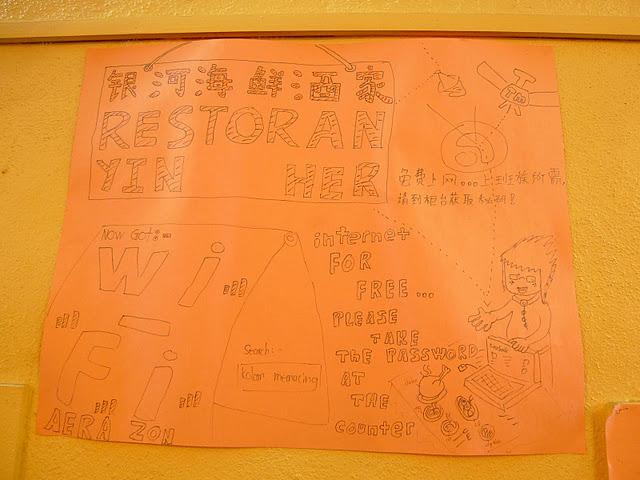 银河海鲜酒家
RESTORAN
YIN HER
免费上网...上班族所需,
请到柜台获取
NOW GOT:-
Wi
Fi
AERA ZON
Search:-
internet
FOR
FREE...
PLEASE
TAKE
THE PASSWORD
AT
THE
counter